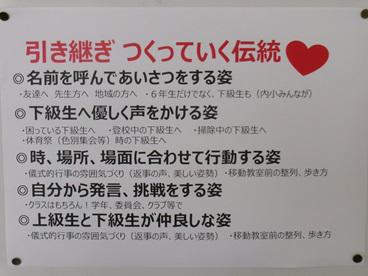 引き継ぎ つくっていく伝統
◎名前を呼んであいさつをする姿
・友達へ 先生方へ 地域の方へ ・6年生だけでなく、下級生も（内小みんなが）
◎下級生へ優しく声をかける姿
・困っている下級生へ ・登校中の下級生へ ・掃除中の下級生へ
・体育祭（色別集会等）時の下級生へ
◎時、場所、場面に合わせて行動する姿
・儀式的行事の雰囲気づくり（返事の声、美しい姿勢）・移動教室前の整列、歩き方
◎自分から発言、挑戦をする姿
・クラスはもちろん！学年、委員会、クラブ等で
◎上級生と下級生が仲良しな姿
・儀式的行事の雰囲気づくり（返事の声、美しい姿勢）・移動教室前の整列、歩き方